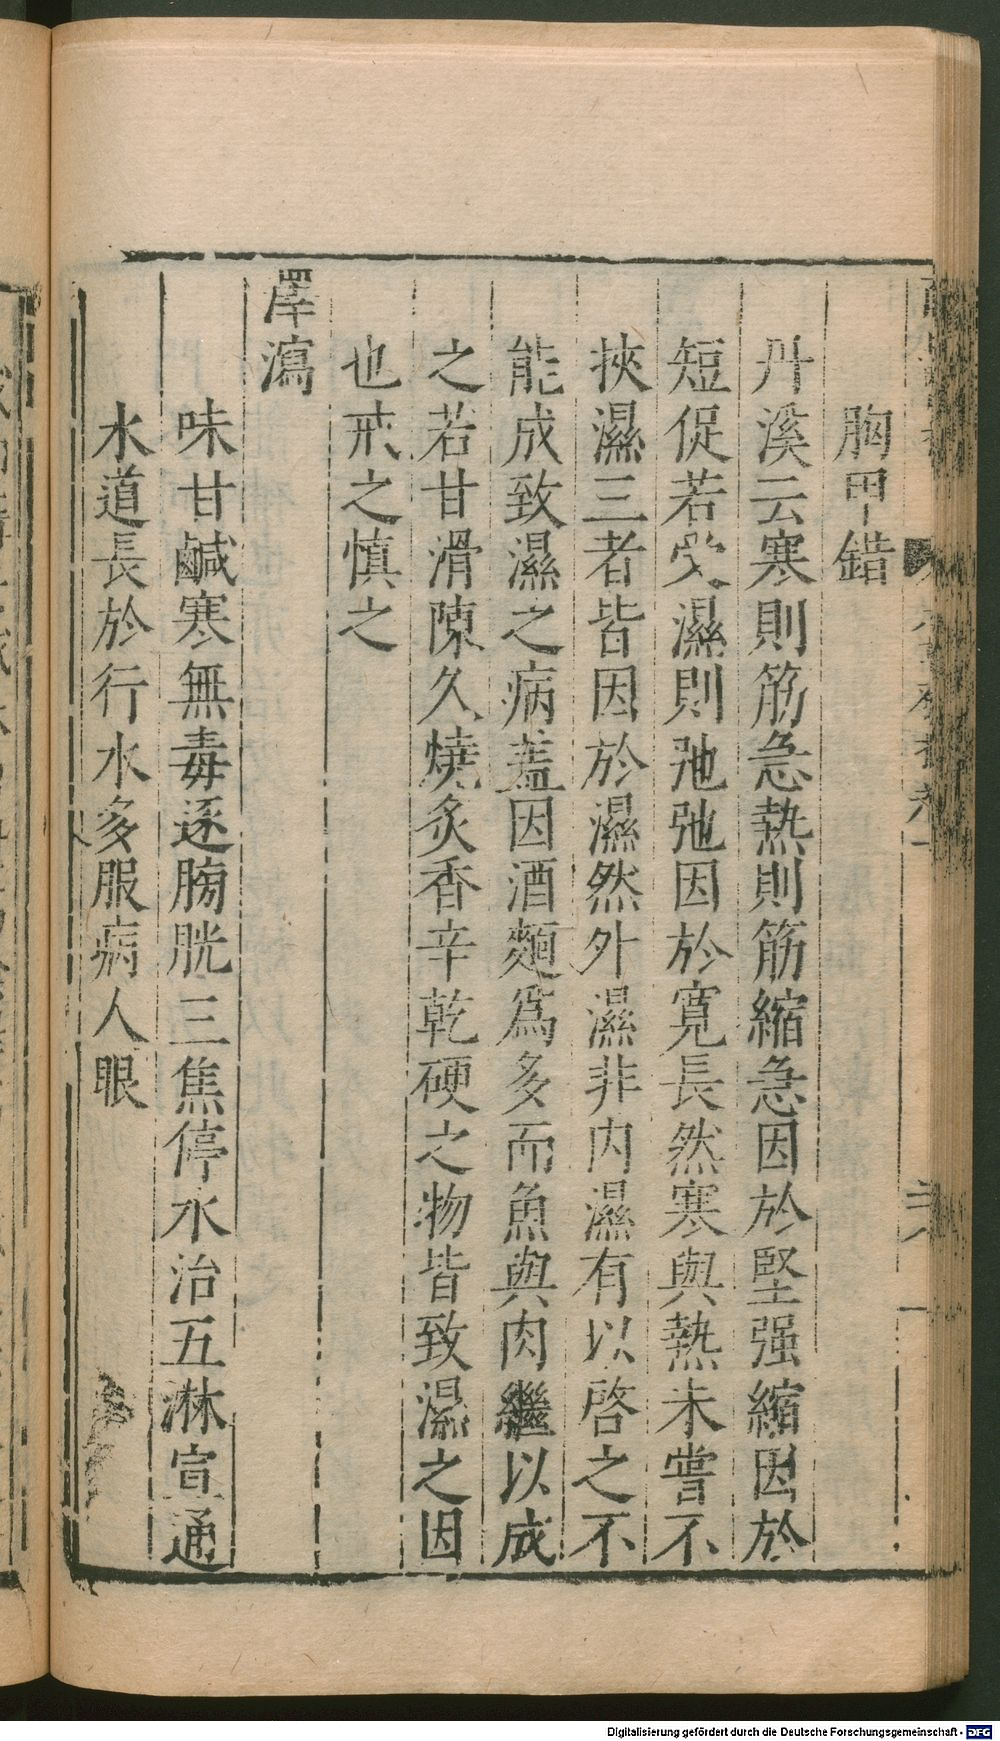 胸甲錯
丹溪云寒則筋急熱則筋縮急因於堅强縮因於
短促若受濕則弛弛因於寬長然寒與熱未嘗不
挾濕三者皆因於濕然外濕非内濕有以啓之不
能成致濕之病蓋因酒麵爲多而魚與肉繼以成
之若甘滑陳久燒炙香辛乾硬之物皆致濕之因
也戒之慎之
澤瀉
味甘鹹寒無毒逐膀胱三焦停水治五淋宣通
水道長於行水多服病人眼
Digitalisierung gefördert durch die Deutsche Forschungsgemeinschaft - DFG